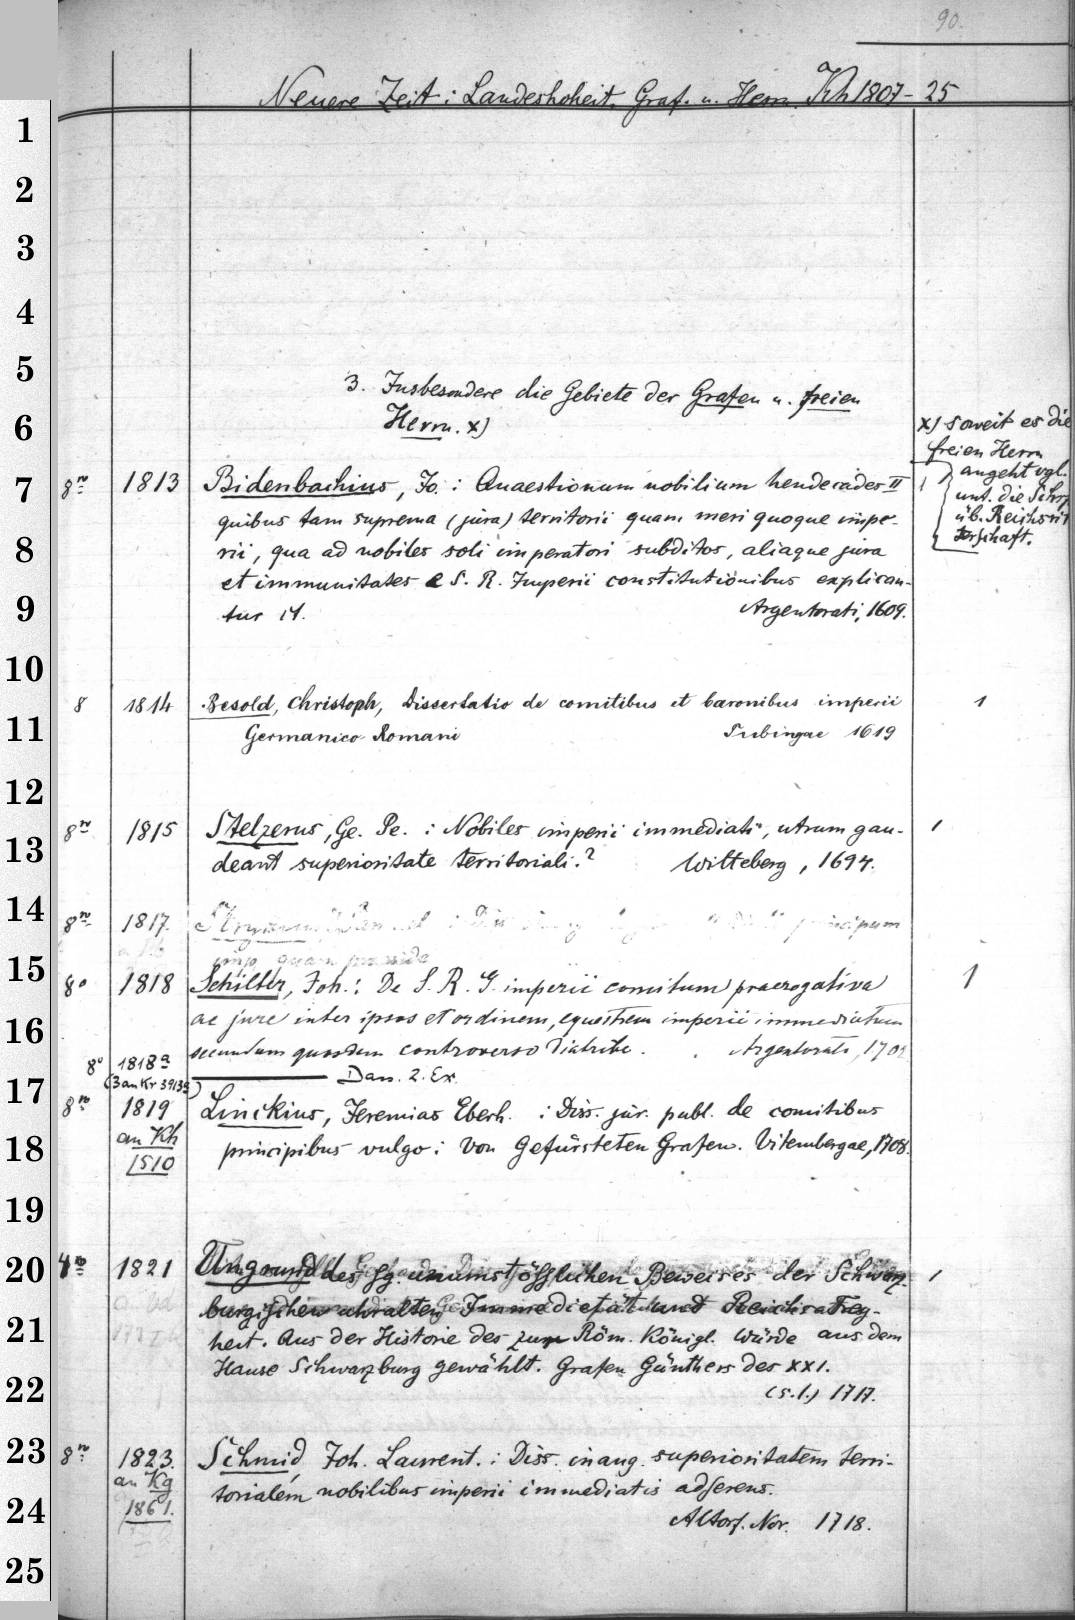 90.
Neuere Zeit: Landeshoheit, Graf. u. Herrn. Kh 1807-25
1
2
3
4
5
3. Insbesondere die Gebiete der Grafen u. freien
6
Herrn. x)
x) soweit es die
freien Herrn
angeht vgl.
unt. die Schr.
üb. Reichsrit
terschaft.
7
8º 1813 Bidenbachius, Jo.: Quaestionum nobilium hendecades II 1
quibus tam suprema (jura) territorii quam meri quoque impe-
8
rii, qua ad nobiles soli imperatori subditos, aliaque jura
et immunitates e S. R. Imperii constitutionibus explican-
9
tur Argentorati, 1609.
10
8 1814 Besold, Christoph, Dissertatio de comitibus et baronibus imperii 1
11
Germanico Romani Tubingae 1619
12
8º 1815 Stelzerus, Ge. Pe.: Nobiles imperii immediati, utrum gau- 1
13
deant superioritate territoriali? Witteberg, 1694.
14
8º 1817. principum
15
8º 1818 Schilter, Joh.: De S. R. G. imperii comitum praerogativa 1
ac jure inter ipsos et ordinem equestrem imperii immediatum
16
secundum quosdam controverso Diatribe. Argentorati, 1702
8º 1818a
(3 an Kr 3913a) Das. 2. Ex.
17
8º 1819 Linckius, Jeremias Eberh.: Diss. jur. publ. de comitibus
an Kh
1510
18
principibus vulgo: von Gefürsteten Grafen. Vitembergae, 1708.
19
20
4º 1821 Ungrund des sg. unumstößlichen Beweises der Schwarz- 1
burgischen uhralten Immedietät und Reichs Frey-
21
heit. Aus der Historie des zum Röm. Königl. Würde aus dem
Hause Schwarzburg gewählt. Grafen Günthers des XXI.
22
(s.l.) 1717.
23
8º 1823. Schmid, Joh. Laurent.: Diss. inaug. superioritatem terri-
an Kg
1861.
torialem nobilibus imperii immediatis adserens.
24
Altorf. Nor. 1718.
25